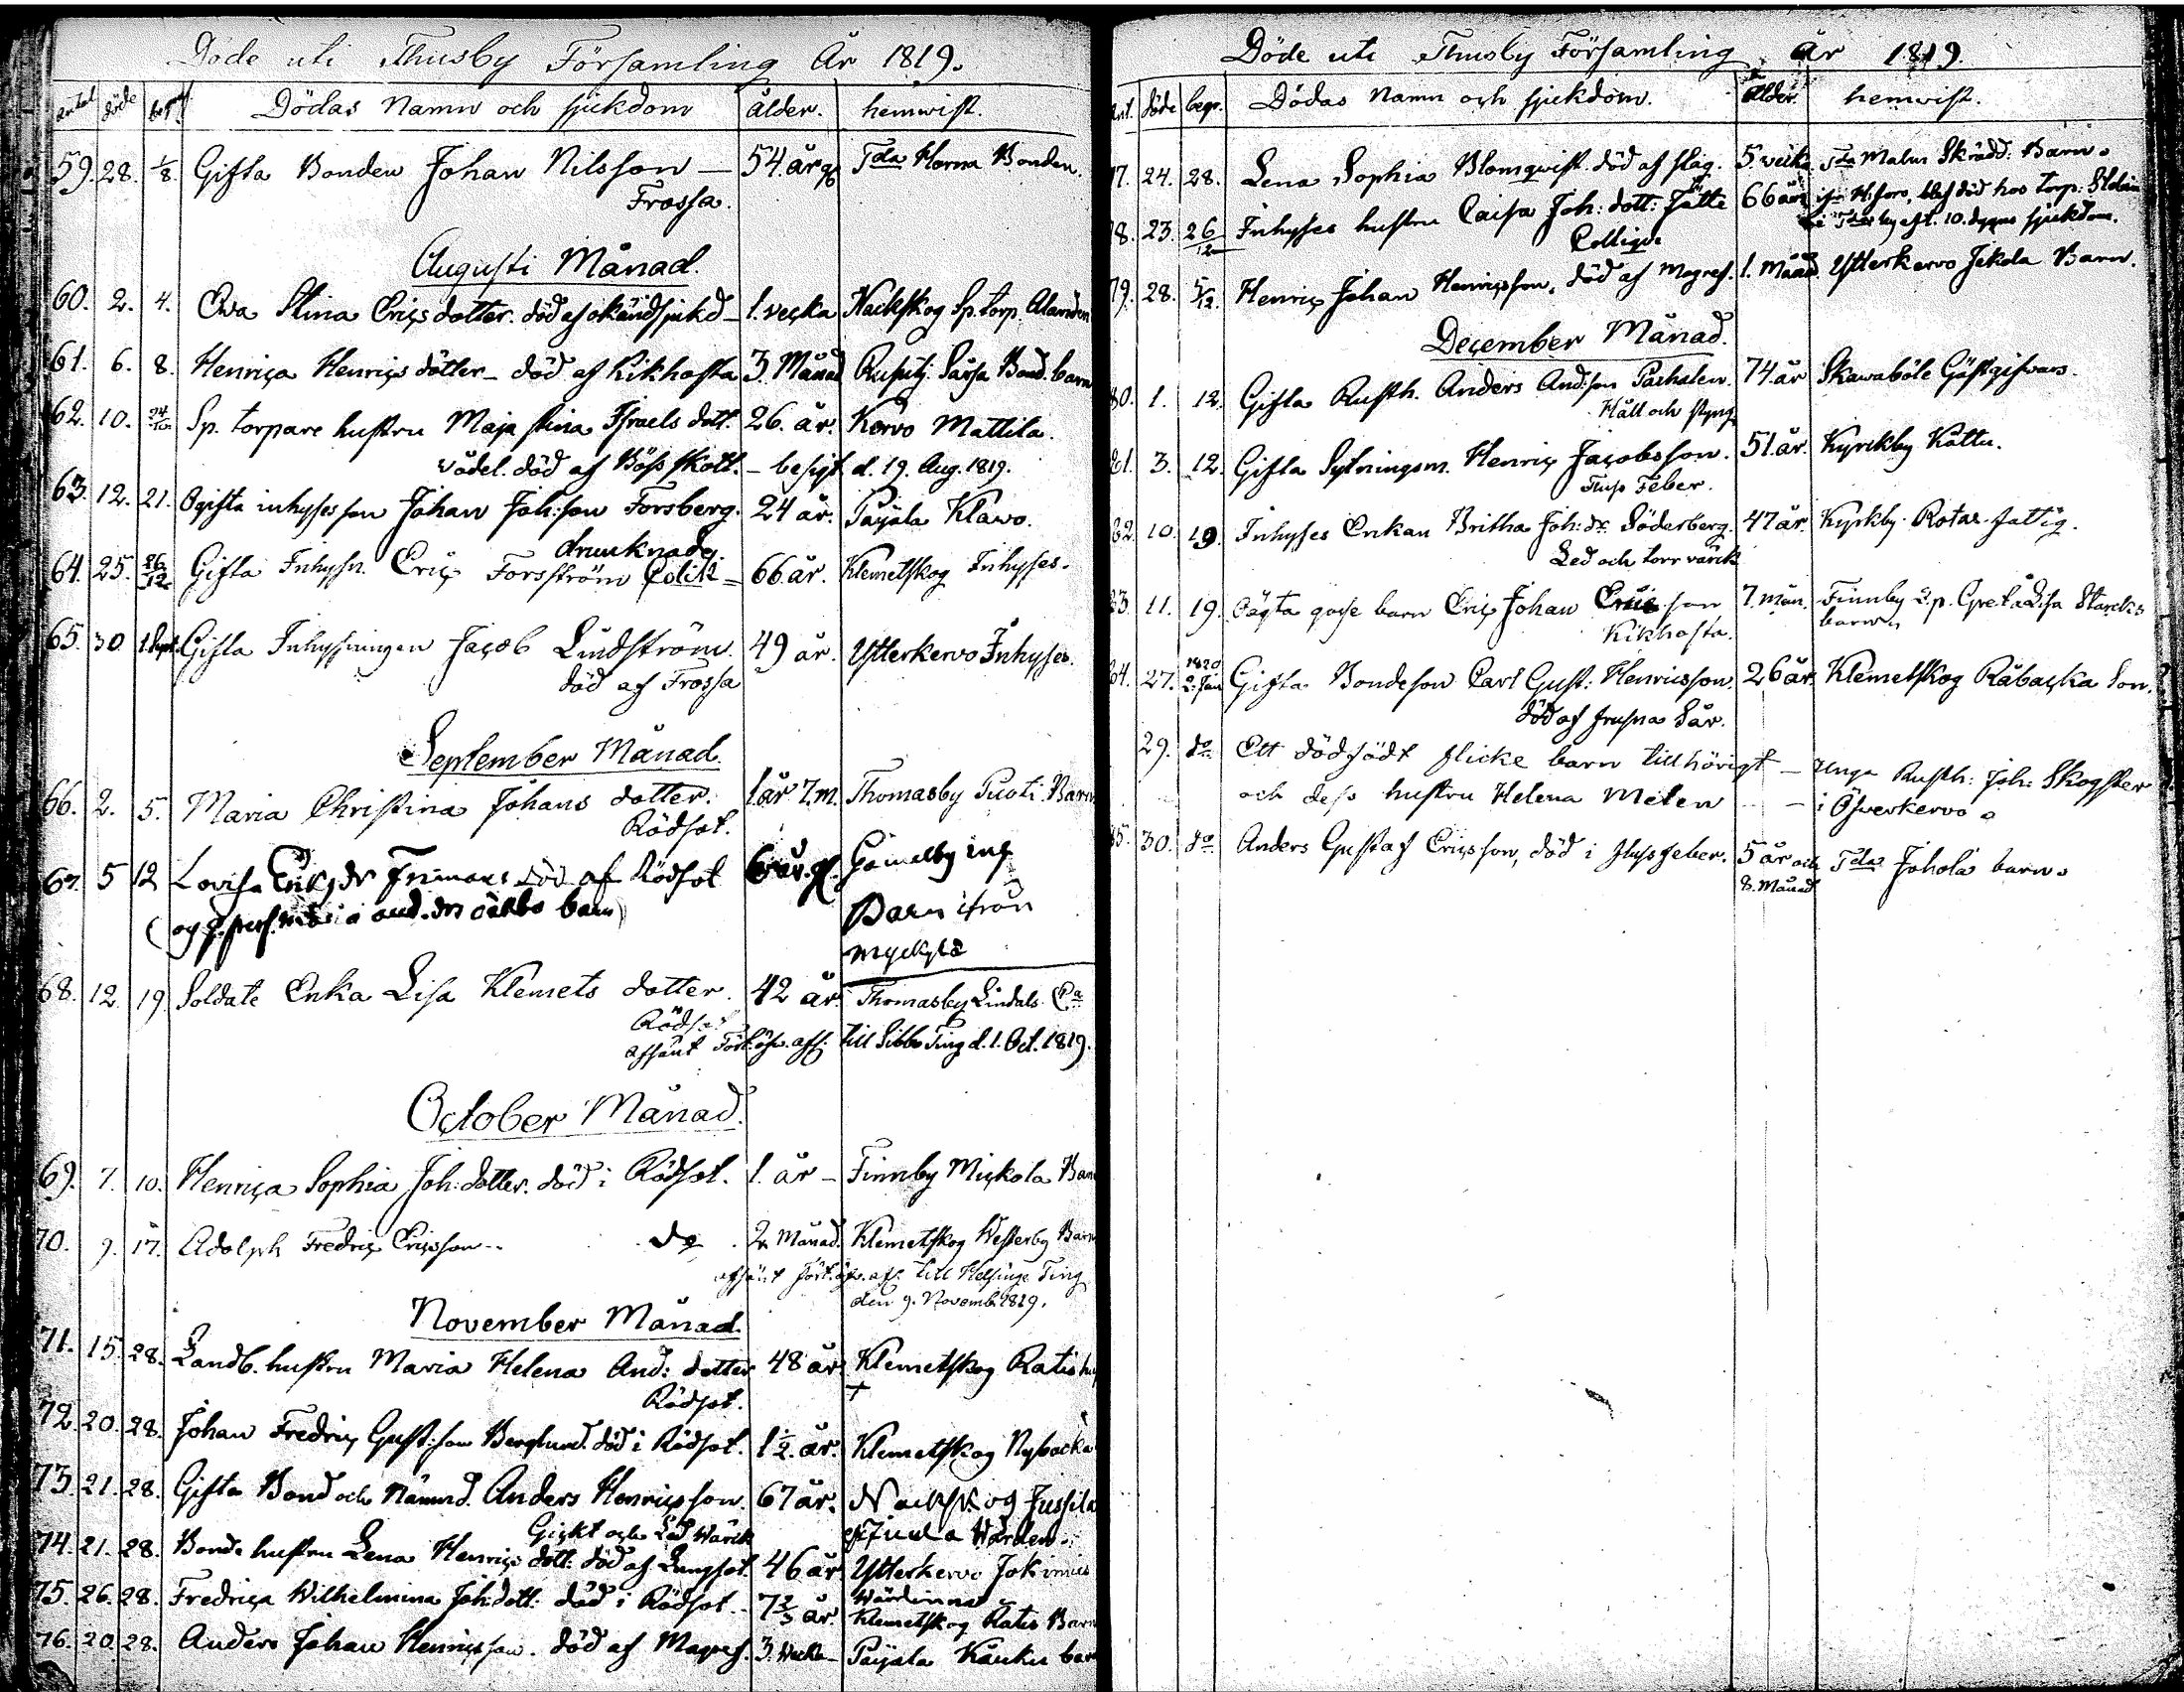 Döde uti Thusby Församling År 1819.
Antal döde begr. Dödas Namn och sjukdom ålder. hemwist.
59. 28. 1/8. Gifta Bonden Johan Nilsson — 54. år Tda Horma Bonden.
Frossa.
Augusti Månad.
60. 2. 4. Ewa Stina Eriçs dotter. död af okänd sjukd — 1. veçka Nackskog Sp. torp.
61. 6. 8. Henriça Henriçs dotter — död af Kikhosta 3. Månad Rusutj. Bond. barn
62. 10. Sp. torpare hustru Maja Stina Israels dott. 26. år. Kervo Mattila.
vådel. död af Böss skott. — besigt d. 19. Aug. 1819.
63. 12. 21. Ogifta inhyses son Johan Joh:son Forsberg. 24 år. Paijala Klawo.
drunknade.
64. 25. 26/12 Gifta Inhysn. Eriç Forsström Colik — 66. år. Klemetskog Inhyses.
65. 30. 1. Sept. Gifta Inhysningen Jaçob Lindström. 49 år. Ytterkervo Inhyses.
död af Frossa
September Månad.
66. 2. 5. Maria Christina Johans dotter. 1 år 7. m. Thomasby Tuoti Barn
Rödsot.
67. 5 12 Lovisa Eriks dr död af Rödsot 6 år. Gamelby
barn) Barn ifrån
68. 12. 19. Soldate Enka Lisa Klemets dotter. 42 år. Thomasby Lindals
Rödsot
afsänt Fört. öfw. afl. till Sibbo Ting d. 1. Oct. 1819.
October Månad.
69. 7. 10. Henriça Sophia Joh: dotter. död i Rödsot. 1. år — Finnby Miçkola Barn
70. 9. 17. Adolph Fredriç Eriçsson. do 2 Månad. Klemetskog Westerby Barn
afsänt fört. öfw. afl. till Helsinge Ting
den 9. Novemb. 1819.
November Månad.
71. 15. 28. Landb. hustru Maria Helena And: dotter 48 år Klemetskog Ratis
Rödsot.
72. 20. 28. Johan Fredriç Gust:son Berglund. död i Rödsot. 1 1/2. år. Klemetskog Nybacka
73. 21. 28. Gifta Bond och Nämnd. Anders Henriçsson. 67 år. Nackskog Jussila
Giçkt och Led Wärck
74. 21. 28. Bonde hustru Lena Henriçs dott: död af Lungsot. 46 år Ytterkervo
Wärdinna
75. 26. 28. Fredriça Wilhelmina Joh: dott: död i Rödsot. — år Klemetskog Ratis Barn
76. 20. 28. Anders Johan Henriçsson. död af Magref. 3. Weckor — Paijala Kauku barn
Döde uti Thusby Församling År 1819.
Ant. döde begr. Dödas Namn och sjukdom. ålder. hemwist.
77. 24. 28. Lena Sophia Blomqwist. död af slag. 5. veckr. Tda Malm Skrädd: Barn.
78. 23. 26/12 Inhyses hustru Caisa Joh: dott: 66 år blef död hos torp:
Collique by eft. 10. dygns sjukdom.
79. 28. 5/12. Henriç Johan Henriçsson, död af Magref. 1. Månad. Ytterkervo Jekola Barn.
December Månad.
80. 1. 12. Gifta Rusth. Anders And:son Pachalen. 74 år Skawaböle Gästgifvars.
Håll och styng
81. 3. 12. Gifta Sytningsm. Henriç Jaçobsson. 51 år. Kyrckby Kåttu.
Fluss Feber.
82. 10. 19. Inhyses Enkan Britha Joh: dr Söderberg. 47 år. Kyrkby Rotas-fattig.
Led och torr värck
83. 11. 19. Oägta gosse barn Eriç Johan son 7. mån. Finnby Greta Lisa Starcks
Kikhosta. barn
84. 27. 1820 2. Jan Gifta Bondeson Carl Gust: Henricsson. 26 år. Klemetskog Råbaçka Son.
död af frusna Sår.
29. do Ett dödfödt flicke barn tillhörigt — Unga Rusth: Joh: Skogster
och dess hustru Helena Meten — i Öfverkervo.
85. 30. do Anders Gustaf Eriçsson, död i flussfeber. 5 år och Tda Johola barn.
8. Månad